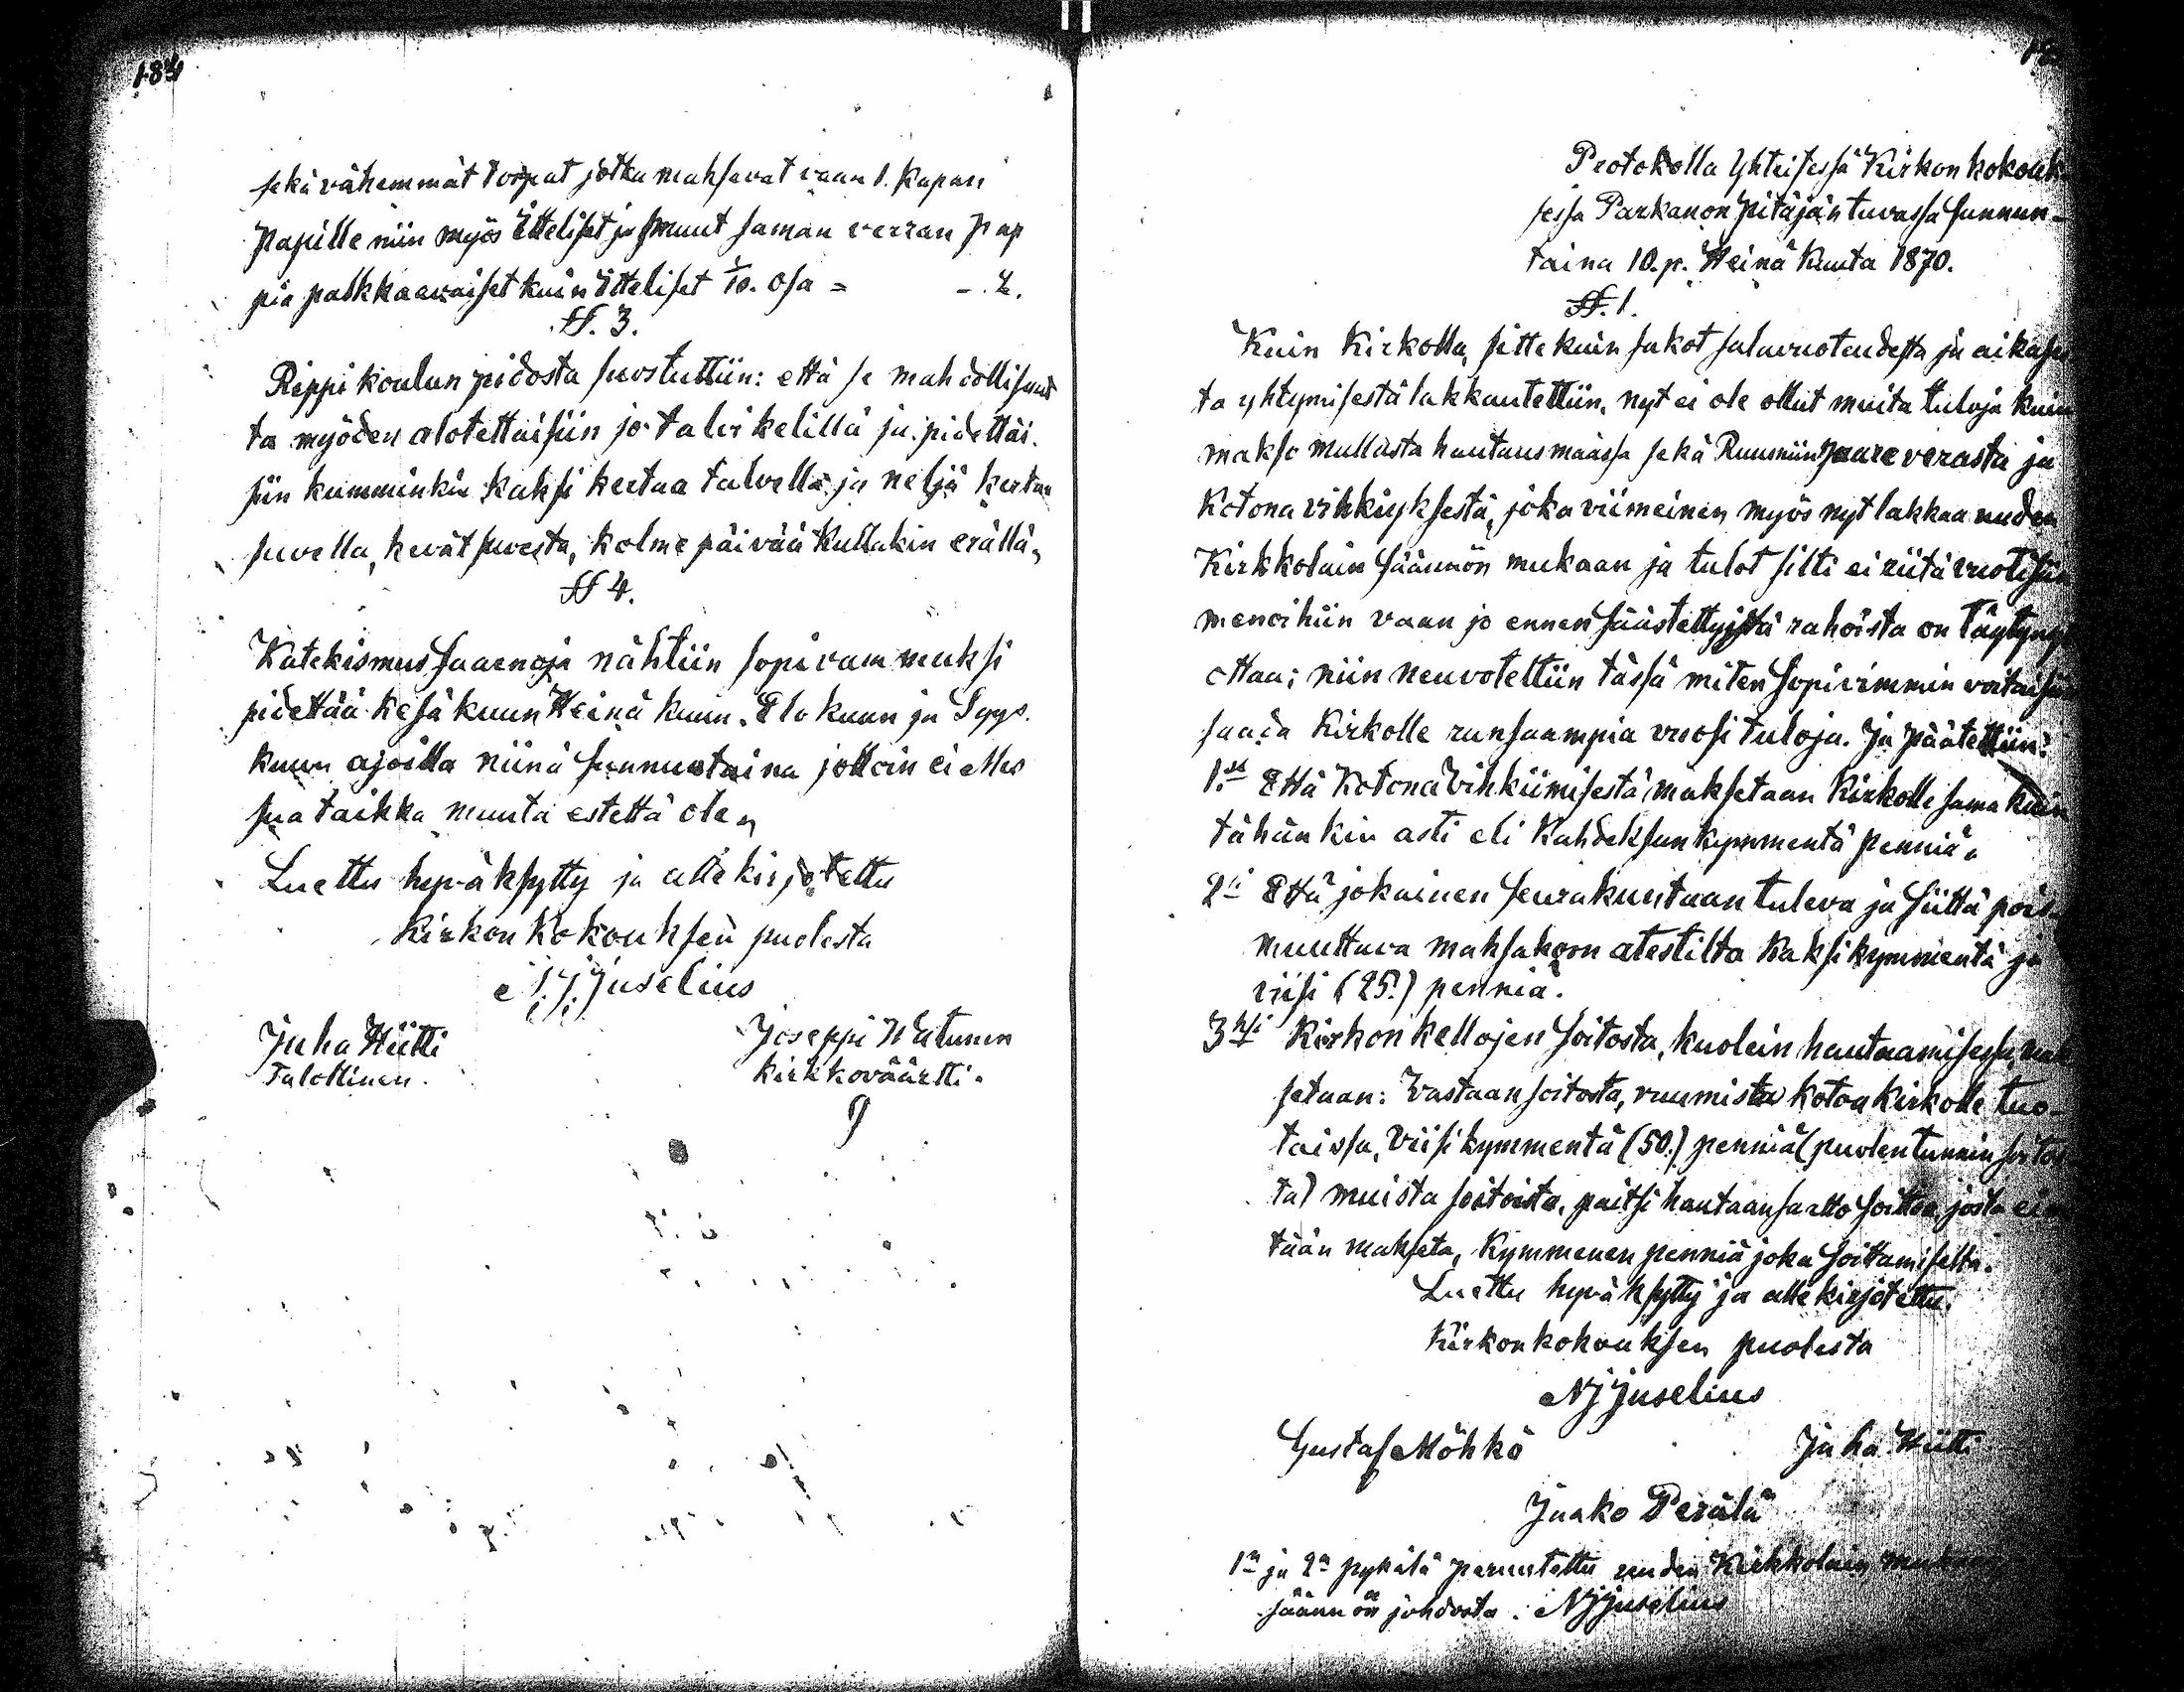 184
sekä vähemmät torpat jotka maksavat vaan 1. Kapan
papille niin myös Itteliset ja muut saman verran pap
pia palkkaavaiset kuin Itteliset 1/10. osa = - . 2.
§§. 3.
Rippikoulun pidosta suostuttiin: että se mahdollisuut
ta myöden alotettaisiin jo talvikelillä ja pidettäi.
siin kumminkin kaksi kertaa talvella ja neljä kertaa
suvella, kevät suvesta, kolme päivää kullakin erällä,
§§ 4.
Katekismus saarnoja nähtiin sopivammuksi
pidettää Kesäkuun Heinäkuun. Elokuun ja Syys.
kuun ajoilla niinä sunnuntaina jolloin ei Mes
sua taikka muuta estettä ole,
Luettu hyväksytty ja allekirjotettu
Kirkon Kokouksen puolesta
N. J. Juselius
Juha Hiitti
Talollinen.
Joseppi Watunen
Kirkkoväärtti.
Protokolla Yhteisessä Kirkon kokouk
sessa Parkanon pitäjän tuvassa sunnun-
taina 10. p. Heinä Kuuta 1870.
§§. 1.
Kuin Kirkolla, sitte kuin sakot salavuoteudesta ja aikase
ta yhtymisestä lakkautettiin, nyt ei ole ollut muita tuloja kuin
makso mullasta hautausmaassa sekä Ruumiin paare verasta ja
Kotona vihkiyksestä, joka viimeinen myös nyt lakkaa uuden
Kirkkolain säännön mukaan ja tulot silti ei riitä vuotisiin
menoihiin vaan jo ennen säästettyistä rahoista on täytynyt
ottaa; niin neuvotettiin tässä miten sopivimmin voitaisiin
saada Kirkolle runsaampia vuosi tuloja. Ja päätettiin:
1.si Että Kotona Vihkiimisestä maksetaan Kirkolle sama kuin
tähän kin asti eli Kahdeksankymmentä penniä.
2.si Että jokainen seurakuntaan tuleva ja siittä pois
muuttava maksakoon atestilta Kaksikymmentä ja
viisi (25.) penniä.
3.ksi Kirkon kellojen soitosta, kuolein hautaamisessa, mak
setaan: Vastaan soitosta, ruumista kotoa kirkolle tuo-
taissa, Viisikymmentä (50.) penniä (puolen tunnin soitos
ta) muista soitoista, paitsi hautaansaatto soittoa, josta ei
tään makseta, Kymmenen penniä joka soittamiselta.
Luettu hyväksytty ja allekirjotettu.
Kirkonkokouksen puolesta
N J Juselius
Gustaf Möhkö
Juha Hiitti
Jaako Perälä
1n ja 2n pykälä peruutettu uuden Kirkkolain
säännön johdosta. N J Juselius